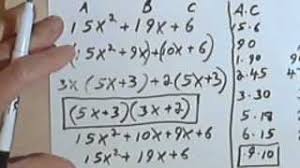 A B C
15x² + 19x + 6
(15x² + 9x) + (10x + 6)
3x (5x+3) + 2(5x+3)
(5x+3)(3x+2)
15x² + 10x + 9x + 6
15x² + 19x + 6
A·C
15·6
90
1·90
2·45
3·30
5·18
6·15
9·10